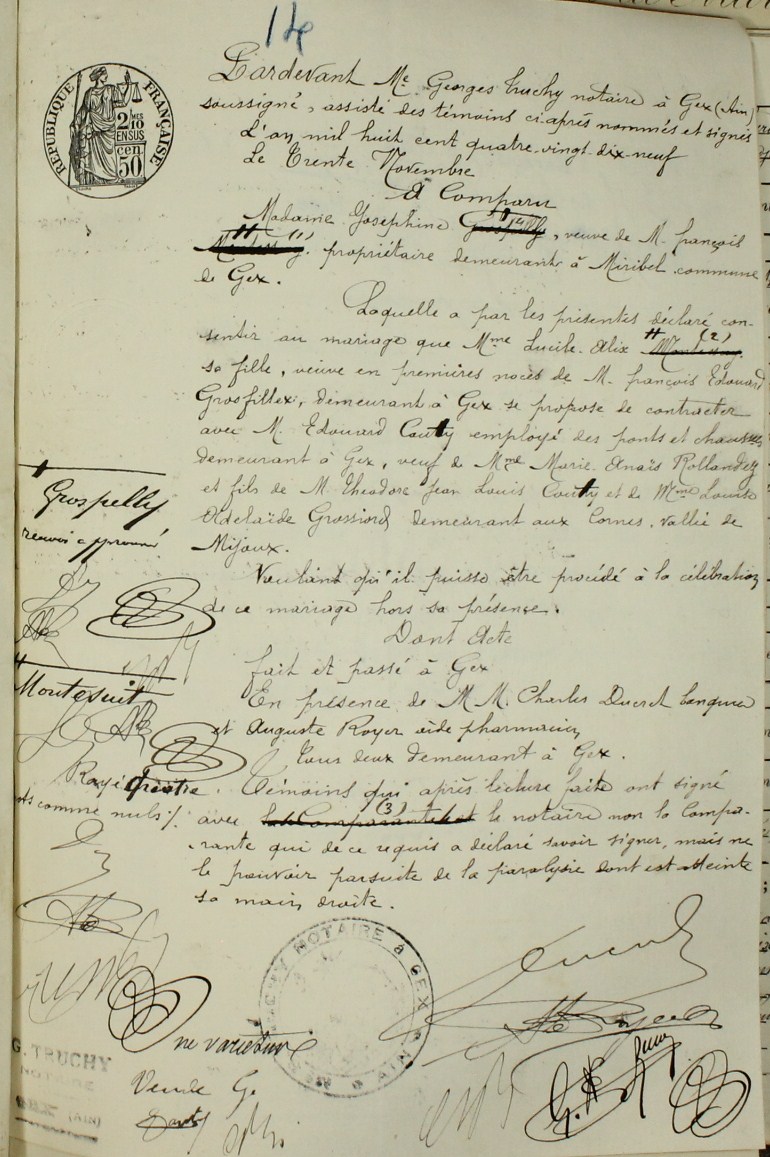 14
RÉPUBLIQUE FRANÇAISE
2/10
EN SUS
50 cen
Pardevant Me Georges Truchy notaire à Gex (Ain)
soussigné, assisté des témoins ci-après nommés et signés
L'an mil huit cent quatre-vingt-dix-neuf
Le Trente Novembre
A Comparu
Madame Josephine , veuve de M. françois
propriétaire demeurant à Miribel commune
de Gex.
Laquelle a par les présentes déclaré con-
sentir au mariage que Mme Lucile-Alix (2)
sa fille, veuve en premières noces de M. françois Edouard
Grosfillex, demeurant à Gex se propose de contracter
avec M. Edouard Coutty employé des ponts et chaussées
demeurant à Gex, veuf de Mme Marie Anaïs Rollandez
et fils de M. Theodore Jean Louis Coutty et de Mme Louise
Adelaïde Grossiord demeurant aux Cornes, vallée de
Mijoux.
Voulant qu'il puisse être procédé à la célébration
de ce mariage hors sa présence.
Dont Acte
fait et passé à Gex
En présence de M M. Charles Ducret banquier
et Auguste Royer aide pharmacien
Tous deux demeurant à Gex.
Témoins qui après lecture faite ont signé
avec (3) le notaire non la Compa-
rante qui de ce requis a déclaré savoir signer, mais ne
le pouvoir par suite de la paralysie dont est atteinte
sa main droite.
Grospelly
renvoi approuvé
Montesuit
Rayé quatre
mots comme nuls
TRUCHY NOTAIRE à GEX
AIN
ne varietur
G. TRUCHY
NOTAIRE
GEX (AIN)